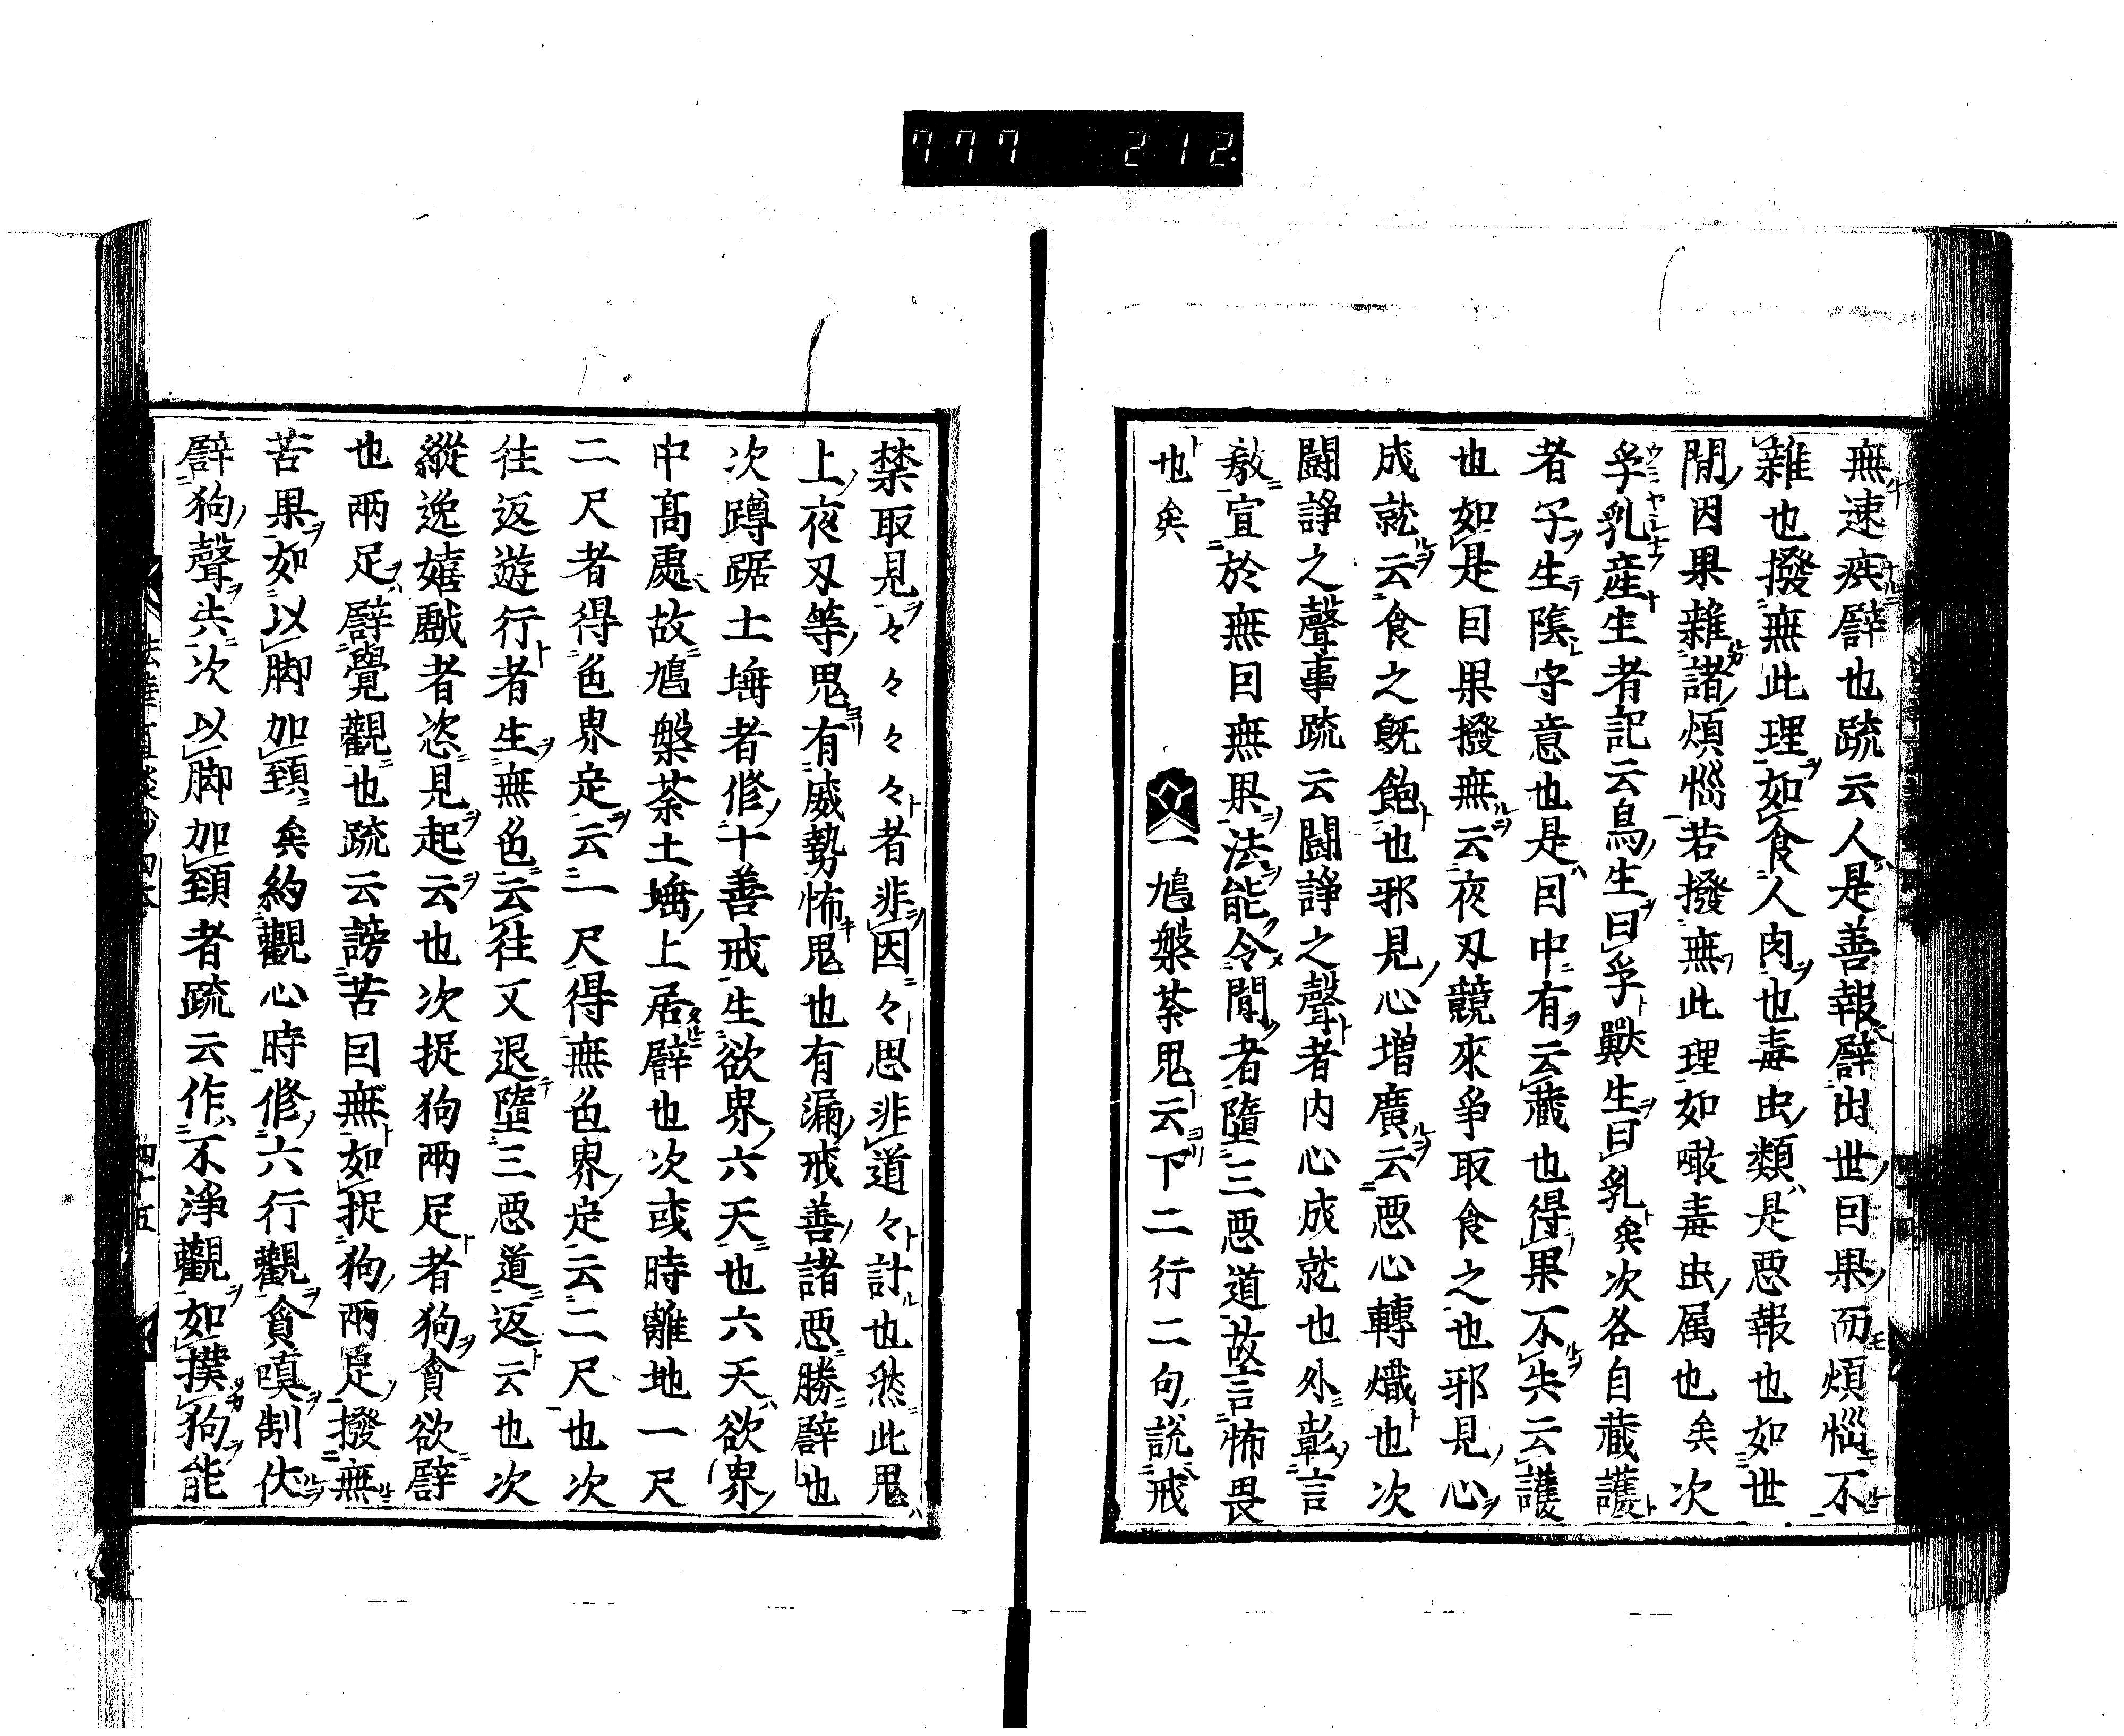 777 212.
無速疾譬也疏云人是善報譬出世因果而煩惱不
雜也撥無此理如食人肉也毒虫類是悪報也如世
間因果雜諸煩惱若撥無此理如噉毒虫属也矣次
孚乳産生者記云鳥生曰孚獸生曰乳矣次各自藏護
者子生陰守意也是因中有云藏也得果不失云護
也如是因果撥無云夜叉競來争取食之也邪見心
成就云食之既飽也邪見心増廣云悪心轉熾也次
闘諍之聲事疏云闘諍之聲者内心成就也外彰言
教宣於無因無果法能令聞者墮三悪道故言怖畏
也矣 一鳩槃荼鬼云下二行二句說戒
禁取見々々々々者非因々思非道々計也然此鬼
上夜叉等鬼有威勢怖鬼也有漏戒善諸悪勝譬也
次蹲踞土埵者修十善戒生欲界六天也六天欲界
中高處故鳩槃荼土埵上居譬也次或時離地一尺
二尺者得色界定云一尺得無色界定云二尺也次
往返遊行者生無色云往又退墮三悪道返云也次
縱逸嬉戯者恣見起云也次捉狗兩足者狗貪欲譬
也兩足譬覺觀也疏云謗苦因無如捉狗兩足撥無
苦果如以脚加頚矣約觀心時修六行觀貪嗔制伏
譬狗聲失次以脚加頚者疏云作不淨觀如撲狗能
四十五